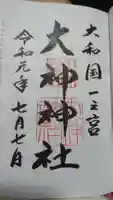 大和国一之宮
大神神社
令和元年七月七日